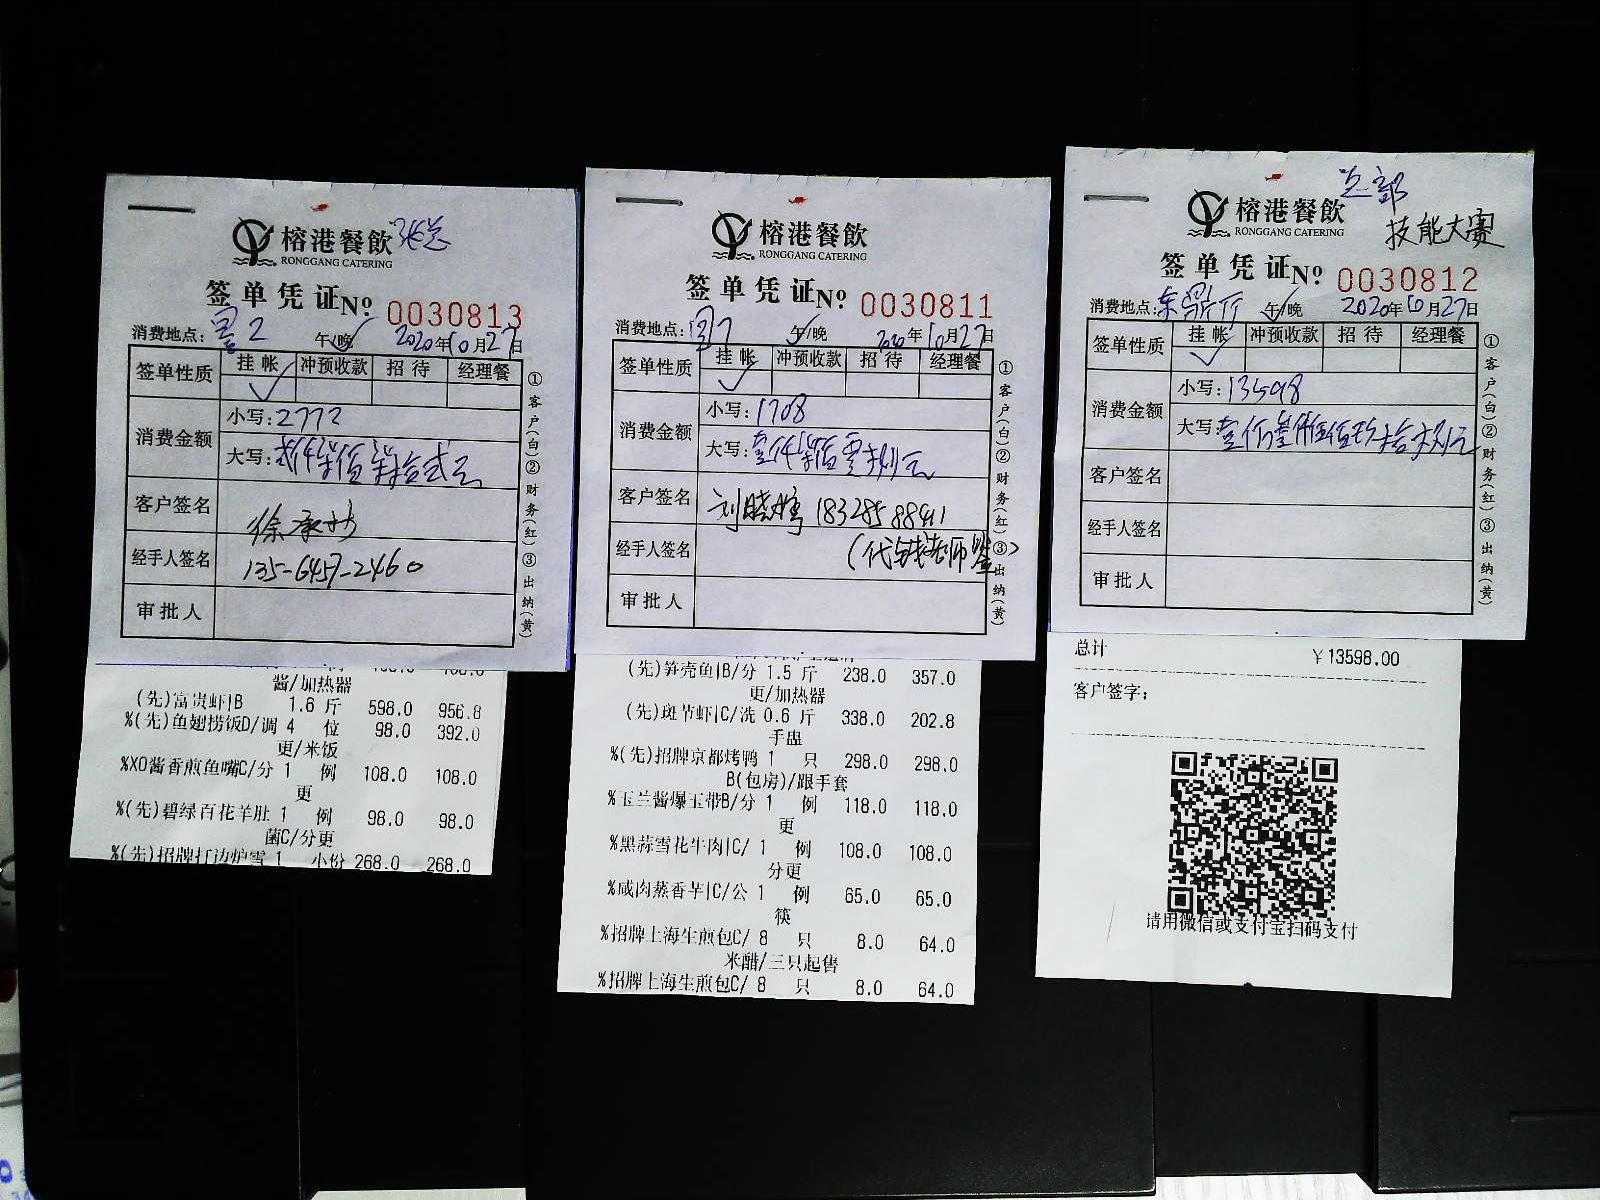 榕港餐飲 张总
RONGGANG CATERING
签单凭证 No 0030813
消费地点: 2 午/晚 2020年10月27日
签单性质 挂帐 冲预收款 招待 经理餐
消费金额
小写: 2772
大写: 贰仟柒佰柒拾贰元
客户签名
经手人签名 135-6457-2460
审批人
①客户(白)②财务(红)③出纳(黄)
酱/加热器
(先)富贵虾|B 1.6 斤 598.0 956.8
%(先)鱼翅捞饭D/调 4 位 98.0 392.0
更/米饭
%XO酱香煎鱼嘴C/分 1 例 108.0 108.0
更
%(先)碧绿百花羊肚 1 例 98.0 98.0
菌C/分更
%(先)招牌打边炉雪 1 小份 268.0 268.0
榕港餐飲
RONGGANG CATERING
签单凭证 No 0030811
消费地点: 午/晚 2020年10月27日
签单性质 挂帐 冲预收款 招待 经理餐
消费金额
小写: 1708
大写: 壹仟柒佰零捌元
客户签名 刘晓 18328588411
经手人签名 (代钱老师签)
审批人
①客户(白)②财务(红)③出纳(黄)
(先)笋壳鱼|B/分 1.5 斤 238.0 357.0
更/加热器
(先)斑节虾|C/洗 0.6 斤 338.0 202.8
手盅
%(先)招牌京都烤鸭 1 只 298.0 298.0
B(包房)/跟手套
%玉兰酱爆玉带B/分 1 例 118.0 118.0
更
%黑蒜雪花牛肉|C/ 1 例 108.0 108.0
分更
%咸肉蒸香芋|C/公 1 例 65.0 65.0
筷
%招牌上海生煎包C/ 8 只 8.0 64.0
米醋/三只起售
%招牌上海生煎包C/ 8 只 8.0 64.0
总部
榕港餐飲 技能大赛
RONGGANG CATERING
签单凭证 No 0030812
消费地点: 午/晚 2020年10月27日
签单性质 挂帐 冲预收款 招待 经理餐
消费金额
小写: 13598
大写: 壹万叁仟伍佰玖拾捌元
客户签名
经手人签名
审批人
①客户(白)②财务(红)③出纳(黄)
总计 ¥13598.00
客户签字:
请用微信或支付宝扫码支付